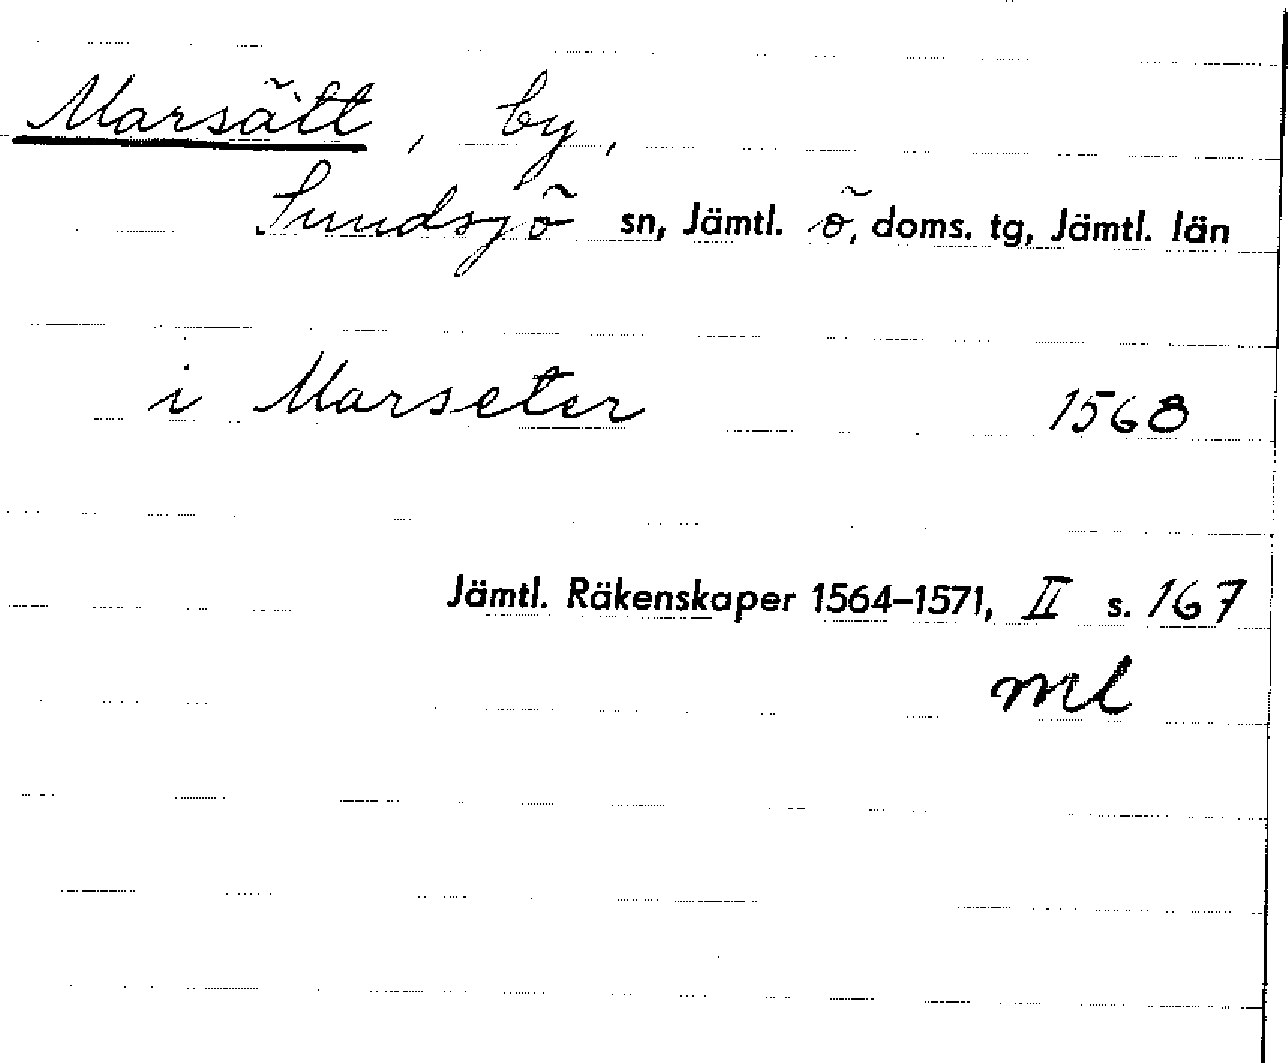 Marsätt, by,
Sundsjö sn, Jämtl. ö. doms. tg, Jämtl. län
i Marseter 1568
Jämtl. Räkenskaper 1564–1571, II s. 167
ml